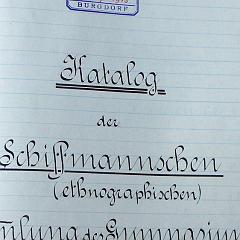 BURGDORF
Katalog
der
Schiffmannschen
(ethnographischen)
des Gymnasium